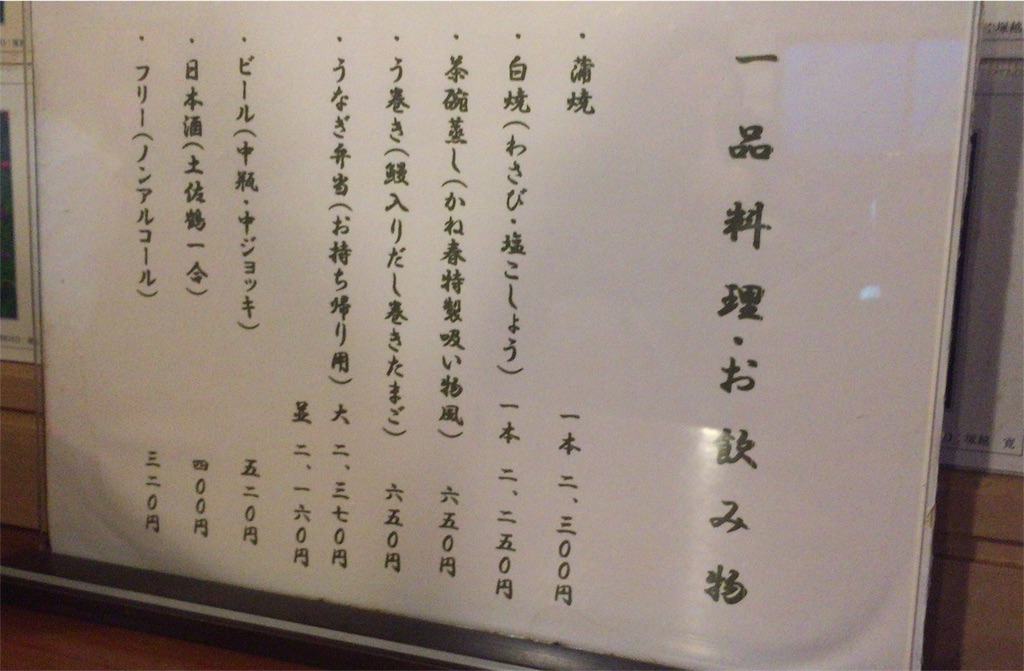 一品料理・お飲み物
・蒲焼 一本 二、三〇〇円
・白焼(わさび・塩こしょう) 一本 二、二五〇円
・茶碗蒸し(かね春特製吸い物風) 六五〇円
・う巻き(鰻入りだし巻きたまご) 六五〇円
・うなぎ弁当(お持ち帰り用) 大 二、三七〇円
並 二、一六〇円
・ビール(中瓶・中ジョッキ) 五二〇円
・日本酒(土佐鶴一合) 四〇〇円
・フリー(ノンアルコール) 三二〇円